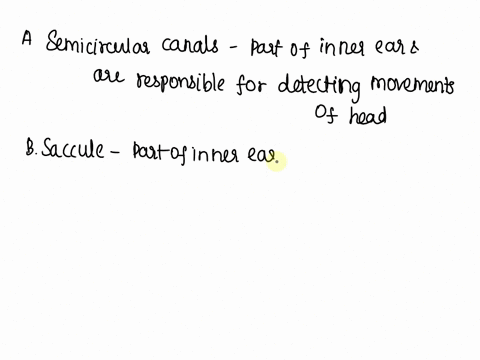 A Semicircular canals - part of inner ear &
are responsible for detecting movements
Of head
B. Saccule - Part of inner ear.